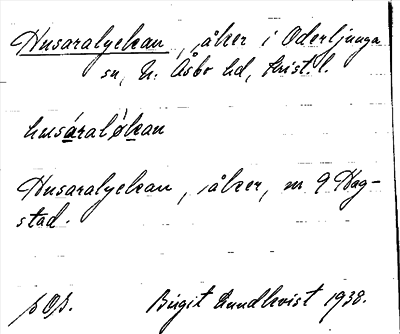 Husaralyckan, åker i Oderljunga
sn, N. Åsbo hd, Krist. l.
husáralø̀kan
Husaralyckan, åker, nr 9 Hag-
stad.
p Op.
Birgit Lundkvist 1938.